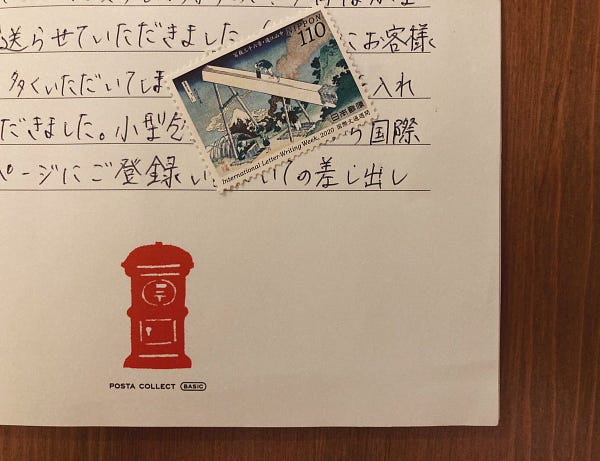 送らせていただきました お客様
多くいただいてしま 入れ
だきました。小型包 ら国際
ページにご登録い いての差し出し
富嶽三十六景・遠江山中
NIPPON
110
日本郵便
International Letter-Writing Week, 2020 国際文通週間
POSTA COLLECT BASIC